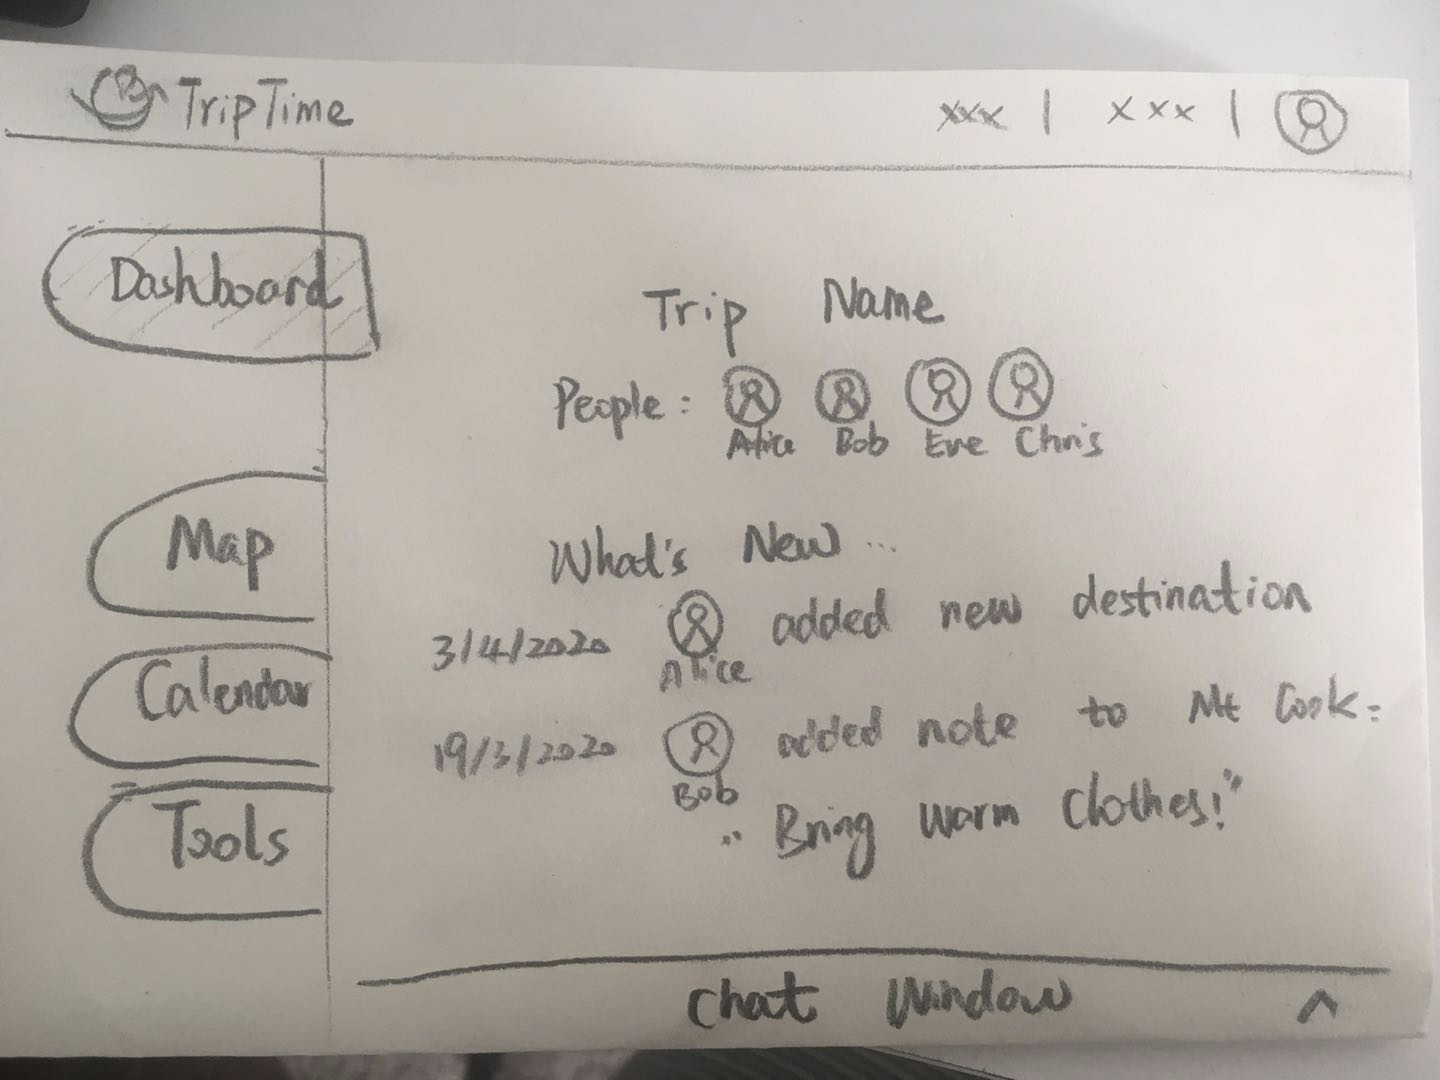 TripTime
xxx | xxx |
Dashboard
Trip Name
People:
Alice Bob Eve Chris
Map
What's New ...
3/4/2020 added new destination
Alice
Calendar
19/3/2020 added note to Mt Cook:
Bob
"Bring warm clothes!"
Tools
Chat Window ^